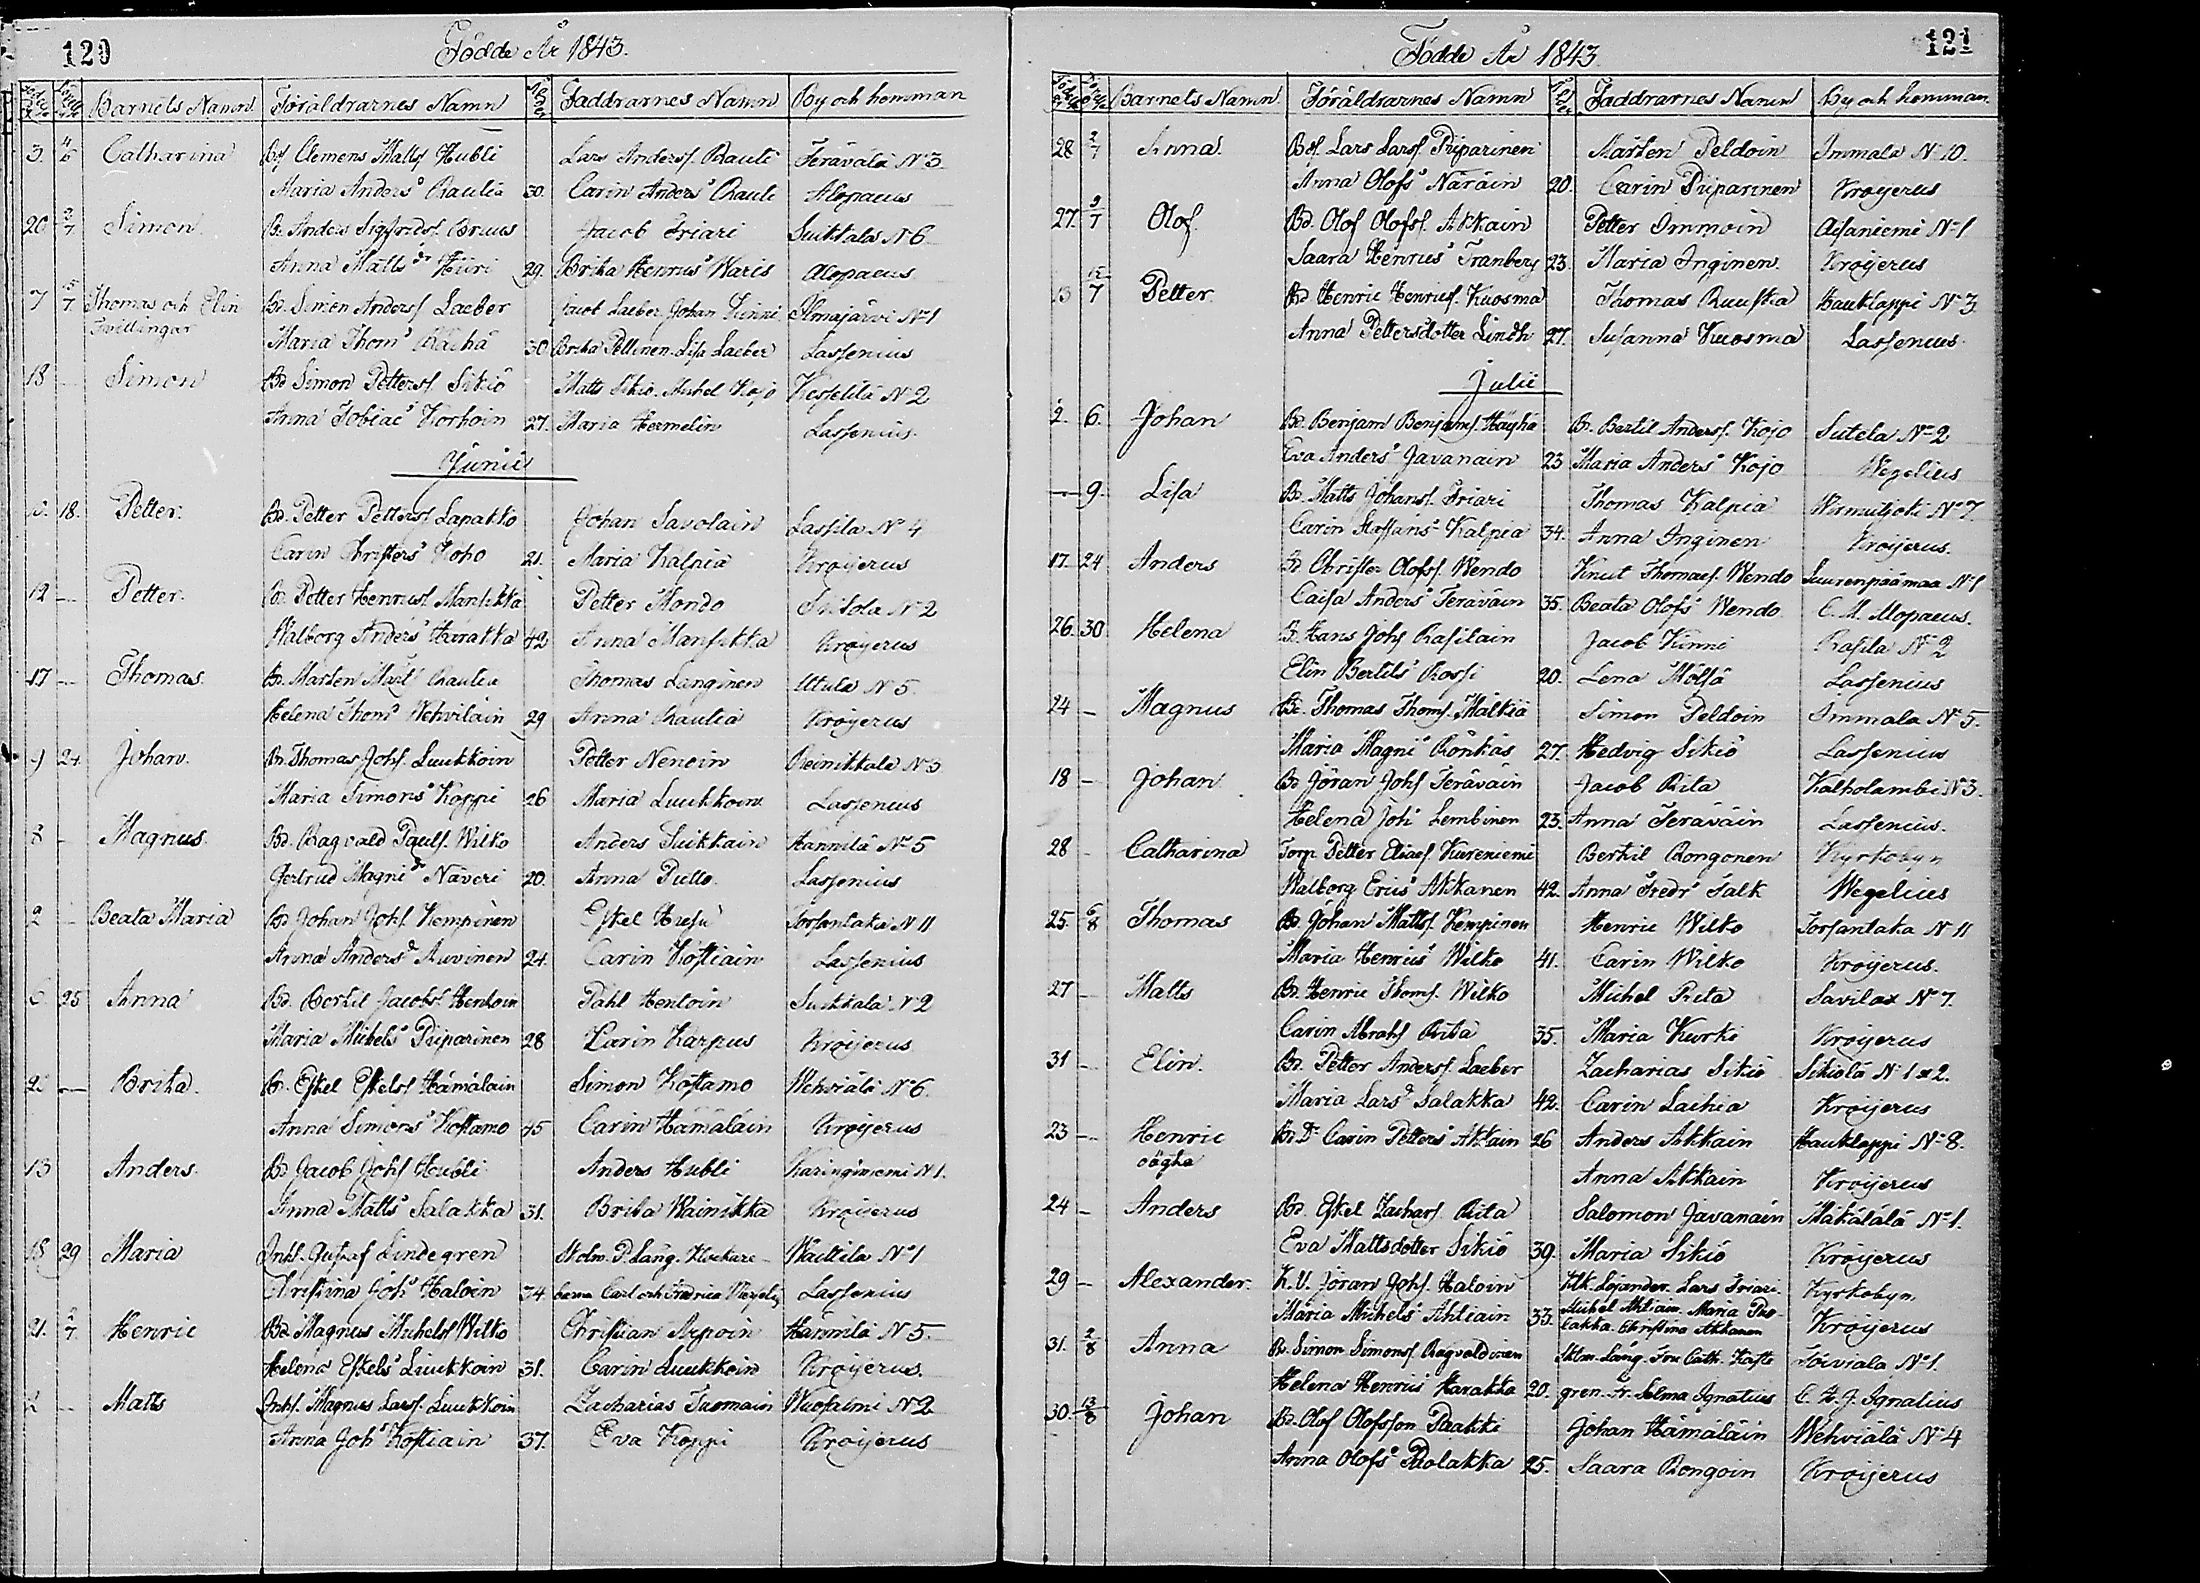 120
Födde År 1843.
Barnets Namn Föräldrarnes Namn Ålder Faddrarnes Namn By och hemman
3. 4/6 Catharina Bd Clemens Matts Hubli Lars Anders. Rauti Terävälä N:o 3.
Maria Anders' Rautia 30. Carin Anders' Rauti Alopaeus
20 2/7 Simon B. Anders Sigfrids. Bruus Jacob Friari Suikkala N:o 6
Anna Matts dr Hiiri 29. Brita Henrics' Waris Alopaeus
7 5/7 Thomas och Elin Bd. Simon Anders. Laeber Jacob Laeber Johan Kinni Ilmajärvi N:o 1
Tvillingar Maria Thom' Räihä 30. Brita Pellinen. Lisa Laeber Lassenius
18 — Simon Bd Simon Petters. Sikiö Matts Sikiö. Michel Kojo Keskelilä N:o 2
Anna Tobiae' Korhoin 27. Maria Hermelin Lassenius
Junii
18. Petter. Bd. Petter Petters. Lapakko Johan Savolain Lassila N:o 4
Carin Christers' Koho 21. Maria Kalpia Kroijerus
12 — Petter. Bd. Petter Henrics. Mansikka Petter Mondo N:o 2
Walborg Anders' Harakka 42 Anna Mansikka Kroijerus
17 — Thomas. Bd. Marten Mårt. Rautia Thomas Langinen Utula N:o 5.
Helena Thom' Wehvilain 29 Anna Rautia Kroijerus
9 24. Johan. Bd. Thomas Johs. Luukkoin Petter Nenoin Reinikkala N:o 3
Maria Simons' Koppi 26 Maria Luukkoin Lassenius
8 — Magnus. Bd. Ragvald Pauls. Wilko Anders Suikkain Hannila N:o 5
Gertrud Magni dr Näveri 20. Anna Pullo. Lassenius
2 — Beata Maria Bd Johan Johs. Kempinen Eskel Torsantaka N:o 11
Anna Anders dr Auvinen 24. Carin Kostiain Lassenius
6 25 Anna Bd. Bertil Jacobs. Hentoin Påhl Hentoin Suikkala N:o 2
Maria Michels' Piiparinen 28 Carin Karpus Kroijerus
2. — Brita. Bd. Eskel Eskels. Hämäläin Simon Kostamo Wehviälä N:o 6.
Anna Simons' Kostamo 45 Carin Hämäläin Kroijerus
13 Anders. Bd Jacob Johs. Hubli Anders Hubli Karinginiemi N:o 1.
Anna Matts' Salakka 31. Brita Wainikka Kroijerus
18 29 Maria Inhl. Gustaf Lindegren P. Lång. Wäittilä N:o 1
Christina Joh' Haloin 34 Lassenius
21. 2/7 Henric Bd. Magnus Michels. Wilko Christian Arpoin Hännilä N:o 5.
Helena Eskels' Luukkoin 31. Carin Luukkoin Kroijerus.
2 — Matts Inhl. Magnus Lars. Luukkoin Zacharias Tuomain Wuosalmi N:o 2
Anna Joh' Kostiain 37. Eva Koppi Kroijerus
121
Födde År 1843
Barnets Namn. Föräldrarnes Namn Ålder Faddrarnes Namn By och hemman.
28 2/7 Anna. Bd. Lars Lars. Piiparinen Marten Peldoin Immala N:o 10.
Anna Olofs' Näräin 20. Carin Piiparinen Kroijerus
27. 9/7 Olof. Bd. Olof Olofs. Akkain Petter Immoin Aisaniemi N:o 1
Saara Henrics' Tranberg 23. Maria Inginen. Kroijerus
13 12/7 Petter Bd Henric Henrics. Kuosma Thomas Ruuska Hauklappi N:o 3
Anna Pettersdotter Lindh 27. Susanna Kuosma Lassenius
Julii
2. 6. Johan Bd. Benjam Benjams. Häyhä B. Bertil Anders. Kojo Sutela N:o 2
Eva Anders' Javanain 23 Maria Anders' Kojo Wegelius
— 9. Lisa Bd. Matts Johans. Friari Thomas Kalpia Wirmutjoki N:o 7
Carin Staffans' Kalpia 34. Anna Inginen Kroijerus.
17. 24 Anders Bd Christer Olofs. Wendo Knut Thomas. Wendo Suurenpäämaa N:o 1
Caisa Anders' Teräväin 35. Beata Olofs' Wendo C. M. Alopaeus.
26. 30. Helena Bd. Hans Johs Rasilain Jacob Kinni Rasila N:o 2
Elin Bertils' Rossi 20. Lena Mölsä Lassenius
24 — Magnus Bd. Thomas Thoms. Mälkiä Simon Peldoin Immala N:o 5.
Maria Magni' Rönkäs 27. Hedvig Sikiö Lassenius
18 — Johan Bd Jöran Johs Teräväin Jacob Rita Kalholambi N:o 3.
Helena Joh' Lembinen 23. Anna Teräväin Lassenius.
28 — Catharina Torp. Petter Eliaes. Kureniemi Bertil Rongonen Kyrkobyn
Walborg Erics' Akkanen 42. Anna Fredr' Falk Wegelius
25. 6/8 Thomas Bd. Johan Matts. Kempinen Henric Wilko Torsantaka N:o 11
Maria Henrics' Wilko 41. Carin Wilko Kroijerus.
27 — Matts Bd. Henric Thoms. Wilko Michel Rita Savilax N:o 7.
Carin Abrahs Rita 35. Maria Kurki Kroijerus
31 — Elin. Bd. Petter Anders. Laeber Zacharias Sikiö Sikiölä N:o 1 & 2.
Maria Lars dr Salakka 42. Carin Laihia Kroijerus
23 — Henric Bd. Dr Carin Petters' Akkain 26 Anders Akkain Hauklappi N:o 8.
oägta Anna Akkain Kroijerus
24 — Anders Bd. Eskel Zachars. Rita Salomon Javanain Mäkälälä N:o 1.
Eva Mattsdotter Sikiö 39. Maria Sikiö Kroijerus
29 — Alexander. K. V. Jöran Johs. Haloin Lojander. Lars Friari. Kyrkobyn
Maria Michels' Ahtiain 33. Michel Ahtiain. Maria Puolakka. Christina Akkanen Kroijerus
31. 2/8 Anna Bd. Simon Simons. Ragvaldinen Lång. Fru Cath. Toiviala N:o 1.
Helena Henrics' Harakka 20. gren. Fr. Selma Ignatius C. H. J. Ignatius
30. 13/8 Johan Bd. Olof Olofsson Paakki Johan Hämäläin Wehviälä N:o 4
Anna Olofs' Puolakka 25. Saara Rongoin Kroijerus